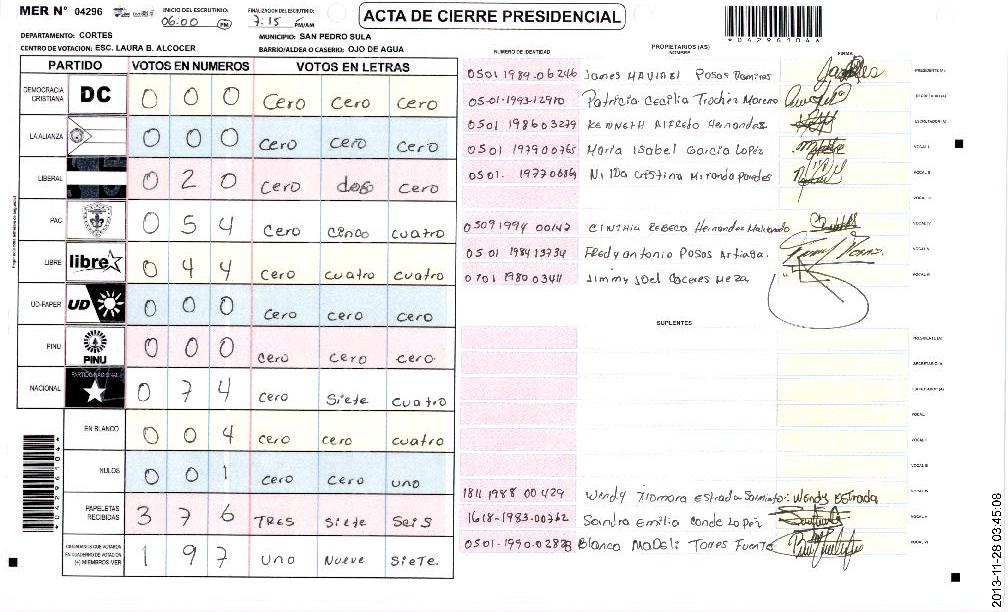 MER N° 04296
INICIO DEL ESCRUTINIO: 06:00 PM
FINALIZACION DEL ESCRUTINIO: 7:15 PM/AM
ACTA DE CIERRE PRESIDENCIAL
*04296104*
DEPARTAMENTO: CORTES
MUNICIPIO: SAN PEDRO SULA
CENTRO DE VOTACION: ESC. LAURA B. ALCOCER
BARRIO/ALDEA O CASERIO: OJO DE AGUA
PARTIDO VOTOS EN NUMEROS VOTOS EN LETRAS
DEMOCRACIA CRISTIANA DC 0 0 0 Cero Cero Cero
LA ALIANZA 0 0 0 Cero Cero Cero
LIBERAL 0 2 0 Cero dos Cero
PAC 0 5 4 Cero Cinco cuatro
LIBRE libre 0 4 4 cero cuatro cuatro
UD-FAPER UD 0 0 0 Cero Cero Cero
PINU PINU 0 0 0 Cero Cero Cero.
NACIONAL PARTIDO NACIONAL 0 7 4 Cero Siete cuatro
EN BLANCO 0 0 4 Cero cero cuatro
NULOS 0 0 1 Cero Cero uno
PAPELETAS RECIBIDAS 3 7 6 TRES Siete Seis
CIUDADANOS QUE VOTARON EN CUADERNO DE VOTACION (+) MIEMBROS MER 1 9 7 Uno Nueve Siete.
PROPIETARIOS (AS)
NUMERO DE IDENTIDAD NOMBRE FIRMA
0501 1984-06246 Posas Ramires PRESIDENTE (A)
05-01-1993-12910 Patricia Cecilia Trochez Moreno SECRETARIO (A)
0501 198603279 KENNETH Alfredo Hernandez ESCRUTADOR (A)
0501 197900765 Maria Isabel Garcia Lopez VOCAL I
0501. Nilda Cristina Miranda Paredes VOCAL II
VOCAL III
0509 1994 00142 CINTHIA REBECA Hernandez Maldonado VOCAL IV
05 01 1984 13734 Fredy antonio Posas Artiaga. VOCAL V
0701 1980 03411 Jimmy Joel Caceres Meza VOCAL VI
SUPLENTES
PRESIDENTE (A)
SECRETARIO (A)
ESCRUTADOR (A)
VOCAL I
VOCAL II
VOCAL III
1811 1988 00429 Wendy Xiomara Estrada Sarmiento: Wendy Estrada VOCAL IV
1618-1983-00762 Sandra Emilia Conde Lopez VOCAL V
0501-1990-02828 Blanca Madeli Torres Fuente VOCAL VI
*04296104*
2013-11-28 03:45:08